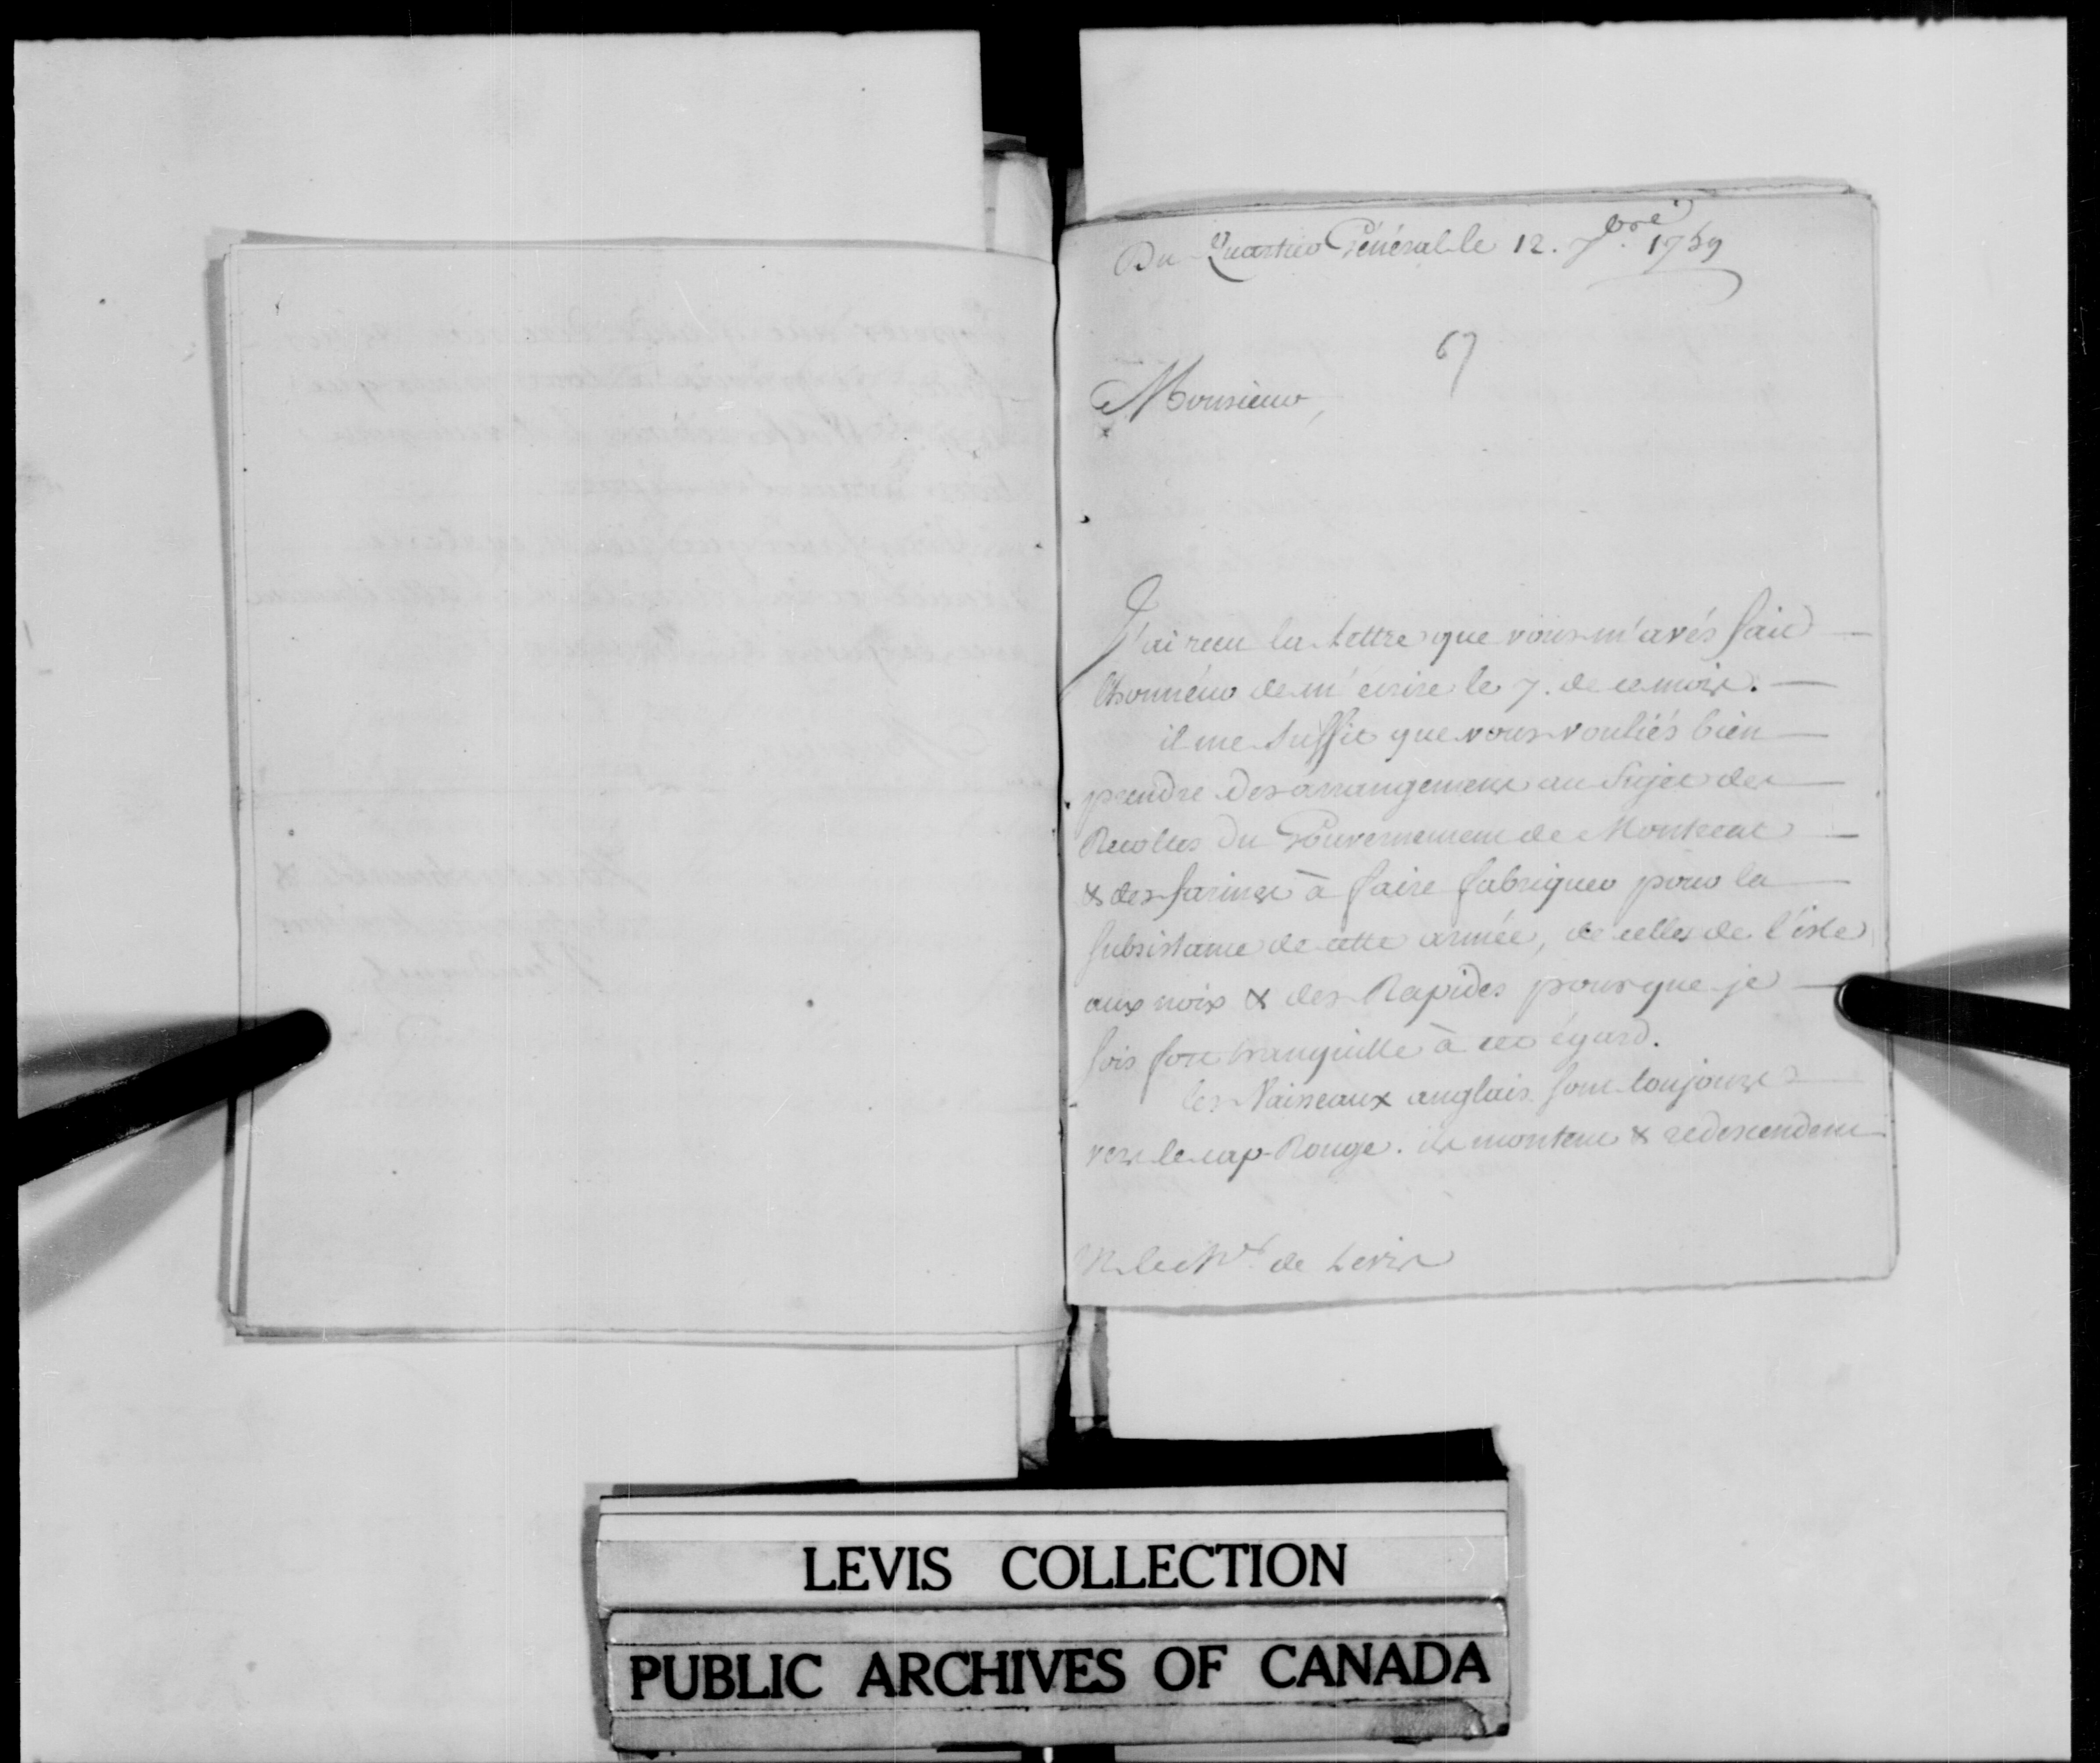 Du Quartier Général le 12. 7bre. 1759
67
Monsieur,
J'ai recu la Lettre que vous m'avés fait
l'honneur de m'ecrire le 7. de ce mois.
il me Suffit que vous vouliés bien
prendre des arrangemens au Sujet des
Recoltes du Gouvernement de Montreal
& des farines à faire fabriquer pour la
subsistance de cette armée, de celles de l'isle
aux noix & des Rapides pour que je
sois fort tranquille à cet égard.
les Vaisseaux anglais sont toujours
vers le cap-Rouge. ils montent & redescendent
M. le Mis. de Levis
LEVIS COLLECTION
PUBLIC ARCHIVES OF CANADA